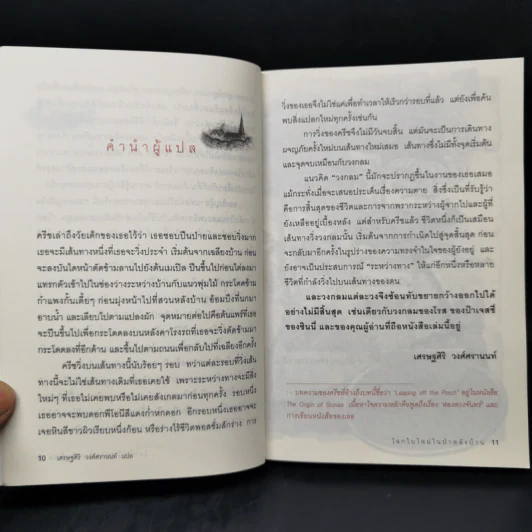 คำนำผู้แปล
ครีชเล่าถึงวัยเด็กของเธอไว้ว่า เธอชอบปีนป่ายและชอบวิ่งมาก
เธอจะมีเส้นทางหนึ่งที่เธอจะวิ่งประจำ เริ่มต้นจากเฉลียงบ้าน ก่อน
จะลงบันไดหน้าตัดข้ามลานไปยังต้นเมเปิล ปีนขึ้นไปก่อนไต่ลงมา
แทรกตัวเข้าไปในช่องว่างระหว่างบ้านกับแนวพุ่มไม้ กระโดดข้าม
กำแพงกันเตี้ยๆ ก่อนมุ่งหน้าไปที่สวนหลังบ้าน อ้อมบึงที่นกมา
อาบน้ำ และเลียบไปตามแปลงผัก จุดหมายต่อไปคือต้นแพร์ที่เธอ
จะปีนขึ้นไปเพื่อกระโดดลงบนหลังคาโรงรถที่เธอจะวิ่งตัดข้ามมา
กระโดดลงที่อีกด้าน และขึ้นไปตามถนนเพื่อกลับไปที่เฉลียงอีกครั้ง
ครีชวิ่งบนเส้นทางนี้นับร้อยๆ รอบ ทว่าแต่ละรอบที่วิ่งเส้น
ทางนี้จะไม่ใช่เส้นทางเดิมที่เธอเคยใช้ เพราะระหว่างทางจะมีสิ่ง
ใหม่ๆ ที่เธอไม่เคยพบหรือไม่เคยสังเกตมาก่อนทุกครั้ง รอบหนึ่ง
เธออาจจะพบดอกพีโอนีสีแดงก่ำหกดอก อีกรอบหนึ่งเธออาจจะ
เจอหินสีขาวผิวเรียบหนึ่งก้อน หรือร่างไร้ชีวิตพอสซั่มสักร่าง การ
10 เศรษฐศิริ วงศ์ศรานนท์ แปล
วิ่งของเธอจึงไม่ใช่แค่เพื่อทำเวลาให้เร็วกว่ารอบที่แล้ว แต่ยังเพื่อค้น
พบสิ่งแปลกใหม่ทุกครั้งเช่นกัน
การวิ่งของครีชจึงไม่มีวันจบสิ้น แต่มันจะเป็นการเดินทาง
ผจญภัยครั้งใหม่บนเส้นทางใหม่เสมอ เส้นทางซึ่งไม่มีทั้งจุดเริ่มต้น
และจุดจบเหมือนกับวงกลม
แนวคิด “วงกลม” นี้มักจะปรากฏขึ้นในงานของเธอเสมอ
แม้กระทั่งเมื่อจะเสนอประเด็นเรื่องความตาย สิ่งซึ่งเป็นที่รับรู้ว่า
คือการสิ้นสุดของชีวิตและการจากพรากระหว่างผู้จากไปและผู้ที่
ยังเหลืออยู่เบื้องหลัง แต่สำหรับครีชแล้ว ชีวิตหนึ่งก็เป็นเสมือน
เส้นทางวิ่งวงกลมนั้น เริ่มต้นจากการกำเนิดไปสู่จุดสิ้นสุด ก่อน
จะกลับมาอีกครั้งในรูปร่างของความทรงจำในใจของผู้ยังอยู่ และ
ยังอาจเป็นประสบการณ์ “ระหว่างทาง” ให้แก่อีกหนึ่งหรือหลาย
ชีวิตที่กำลังวิ่งไปบนเส้นทางของตน
และวงกลมแต่ละวงจึงซ้อนทับขยายกว้างออกไปได้
อย่างไม่มีสิ้นสุด เช่นเดียวกับวงกลมของโรส ของป้าเจสซี่
ของซินนี่ และของคุณผู้อ่านที่ถือหนังสือเล่มนี้อยู่
เศรษฐศิริ วงศ์ศรานนท์
บทความของครีชที่อ้างถึงบทนี้ชื่อว่า “Leaping off the Porch” อยู่ในหนังสือ
The Origin of Stories เนื้อหาใจความหลักคือพูดถึงเรื่อง ‘สองดวงจันทร์’ และ
การเขียนหนังสือของเธอ
โลกใบใหม่ในป่าหลังบ้าน 11